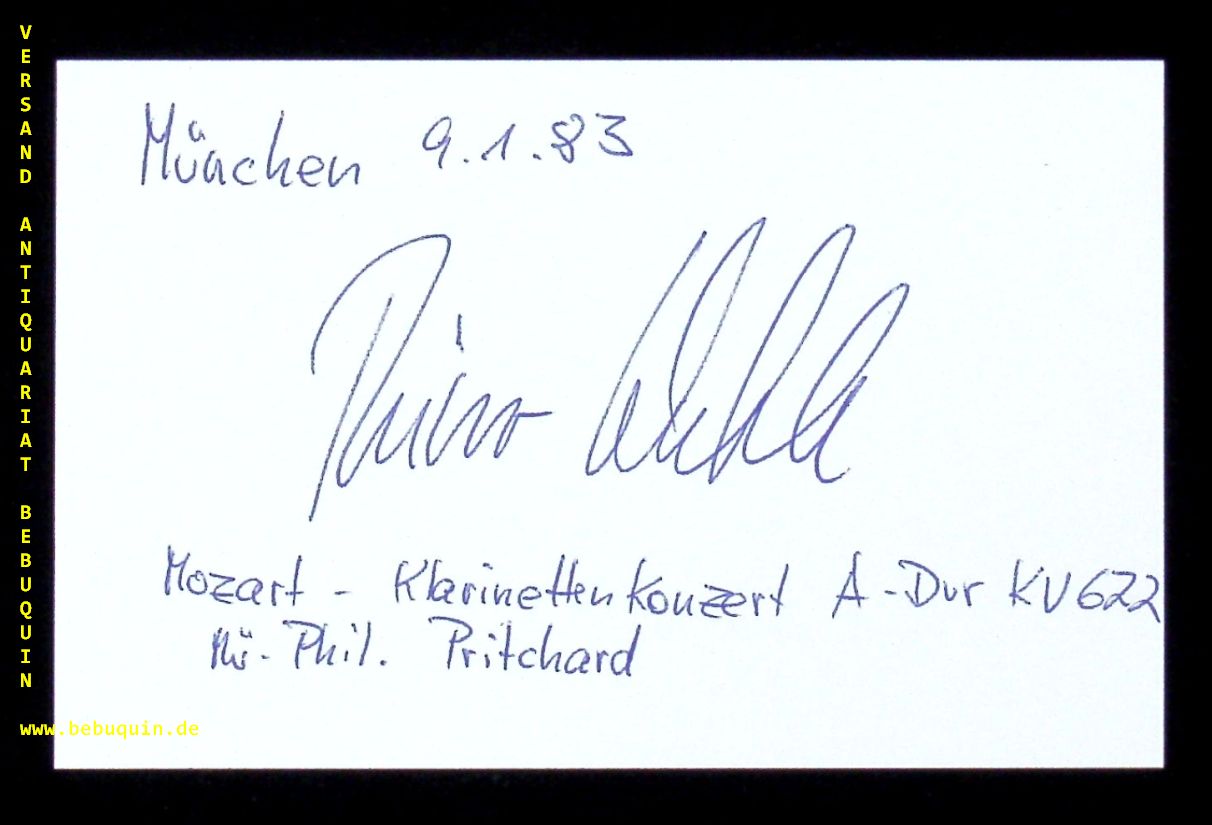 VERSAND ANTIQUARIAT BEBUQUIN
www.bebuquin.de
München 9.1.83
Mozart - Klarinettenkonzert A-Dur KV 622
Mü-Phil. Pritchard